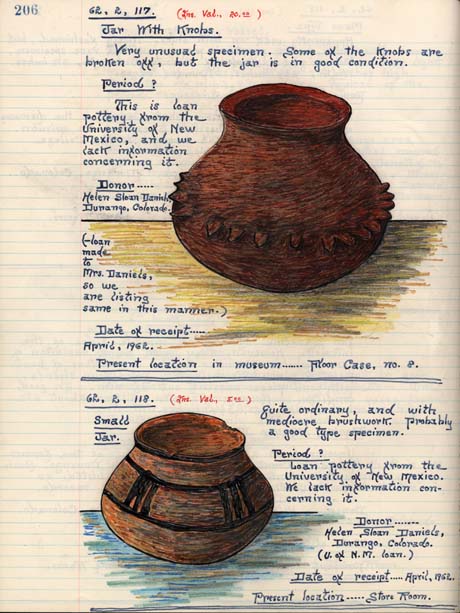 206
62. 2, 117. (Ins. Val., 20.00)
Jar With Knobs.
Very unusual specimen. Some of the Knobs are
broken off, but the jar is in good condition.
Period?
This is loan
pottery from the
University of New
Mexico, and we
lack information
concerning it.
Donor.....
Helen Sloan Daniels,
Durango, Colorado.
(-loan
made
to
Mrs. Daniels,
so we
are listing
same in this manner.)
Date of receipt.....
April, 1962.
Present location in museum...... Floor Case, no. 8.
62, 2, 118. (Ins. Val., 5.00)
Small
Jar.
Quite ordinary, and with
mediocre brushwork. Probably
a good type specimen.
Period?
Loan pottery from the
University of New Mexico.
We lack information con-
cerning it.
Donor.......
Helen Sloan Daniels,
Durango, Colorado.
(U. of N.M. loan.)
Date of receipt..... April, 1962.
Present location..... Store Room.